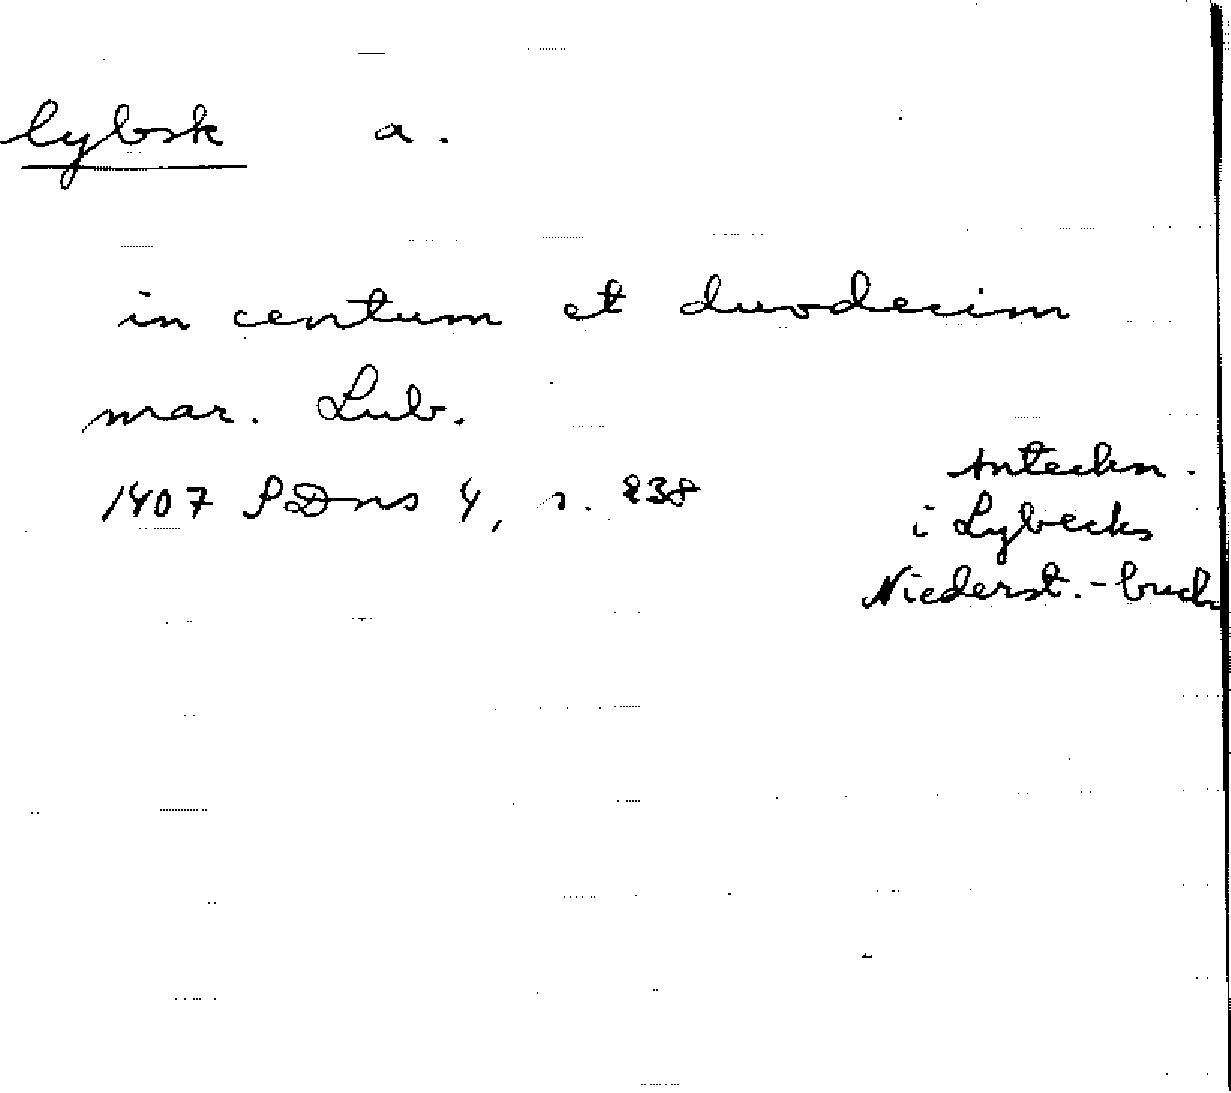 lybsk a.
in centum et duodecim
mar. Lub.
1407 SDns 4, s. 238
Anteckn.
i Lybecks
Niederst.-buch